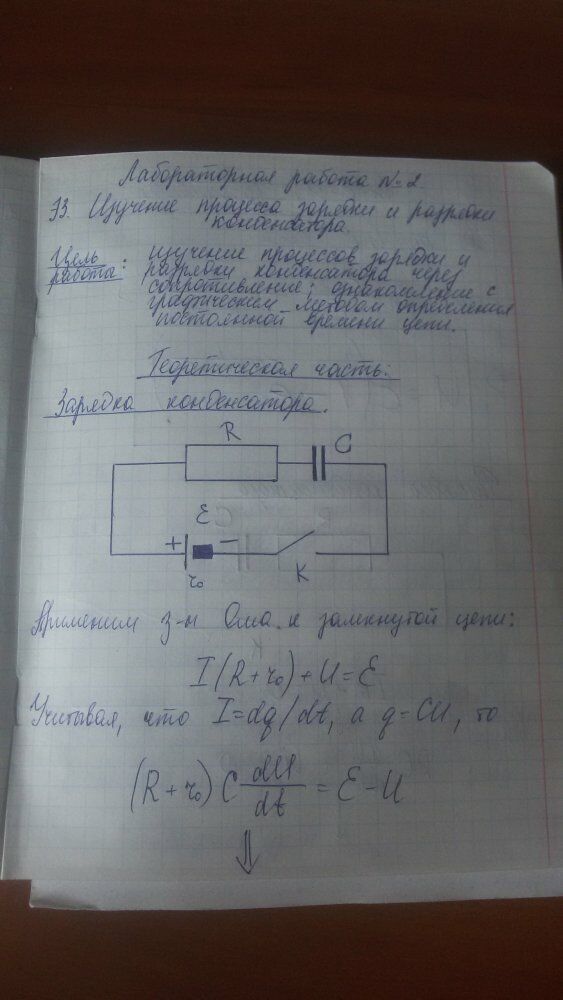 Лабораторная работа №2
Э3. Изучение процесса зарядки и разрядки
конденсатора.
Цель работы: изучение процессов зарядки и
разрядки конденсатора через
сопротивление; ознакомление с
графическим методом определения
постоянной времени цепи.
Теоретическая часть:
Зарядка конденсатора.
R
C
ℰ
+ −
r₀
K
Применим з-н Ома к замкнутой цепи:
I(R+r₀)+U=ℰ
Учитывая, что I=dq/dt, а q=CU, то
(R+r₀)C dU/dt = ℰ−U
⇓